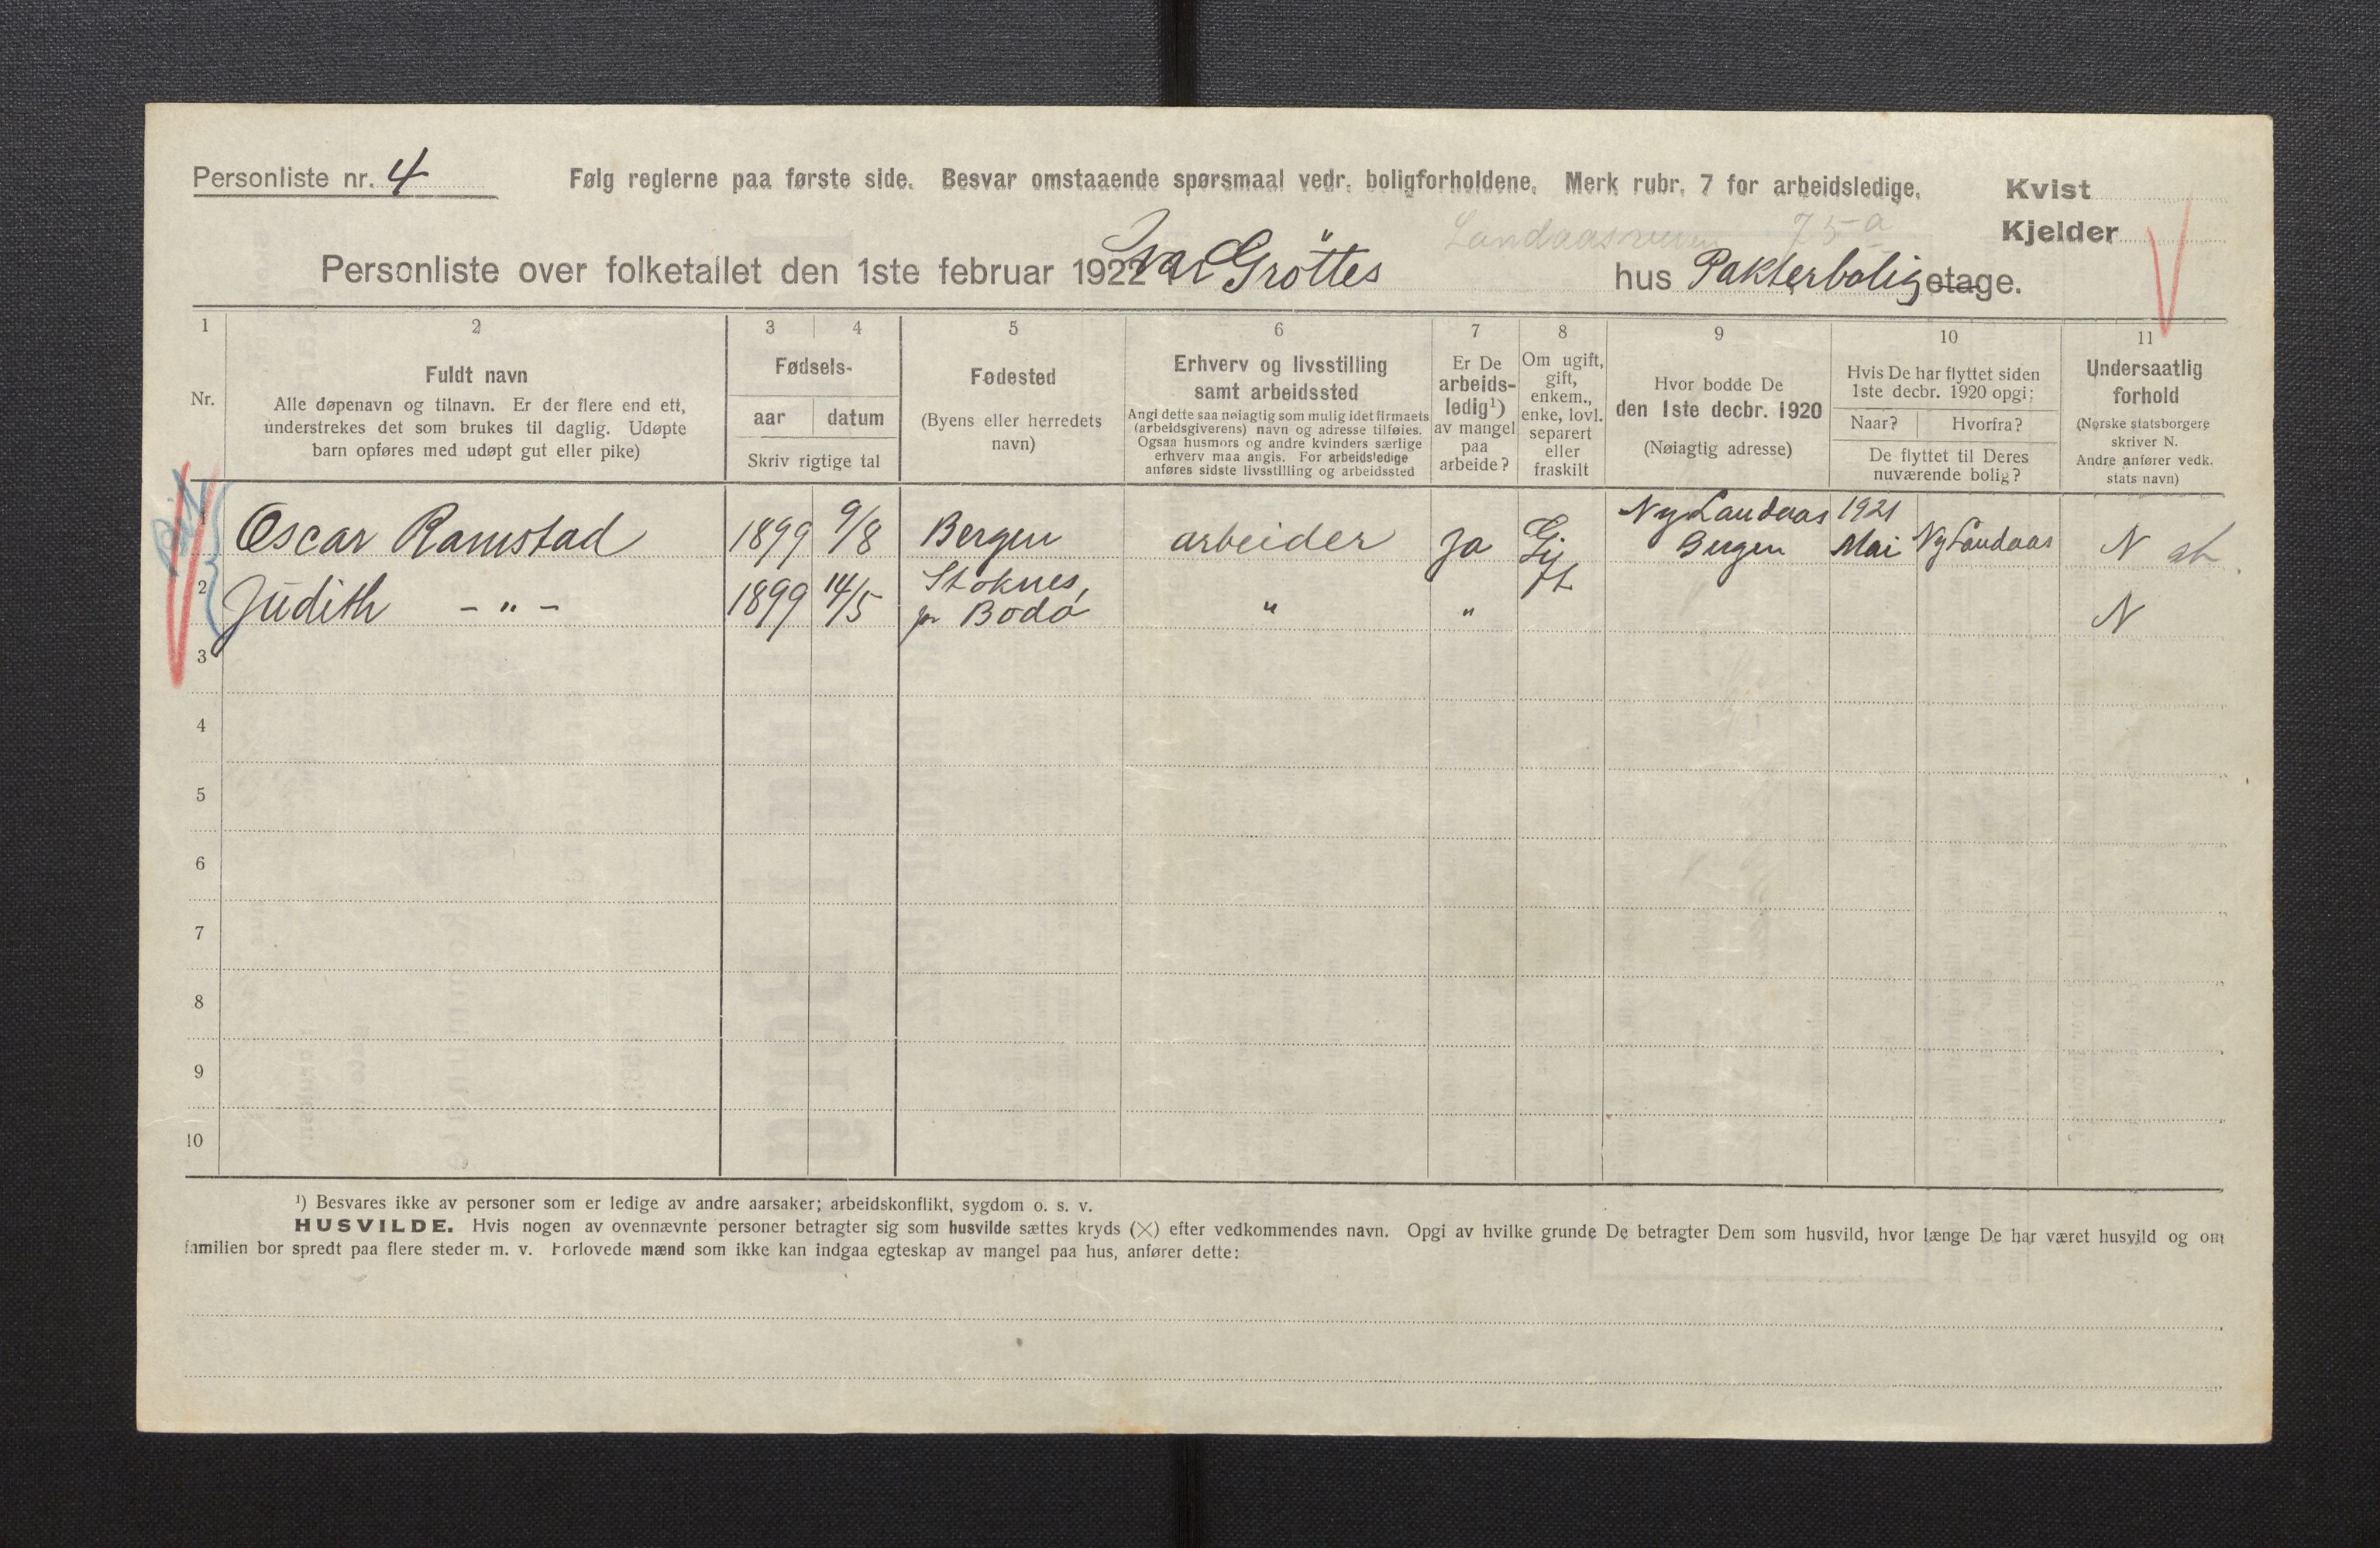 Personliste nr. 4 Følg reglerne paa første side. Besvar omstaaende spørsmaal vedr. boligforholdene. Merk rubr. 7 for arbeidsledige. Kvist
Landaasveien 75a Kjelder
Personliste over folketallet den 1ste februar 1922 Ivar Gröttes hus Pakterbolig etage.
1 2 3 4 5 6 7 8 9 10 11
Nr.
Fuldt navn
Alle døpenavn og tilnavn. Er der flere end ett,
understrekes det som brukes til daglig. Udøpte
barn opføres med udøpt gut eller pike)
Fødsels-
aar datum
Skriv rigtige tal
Fødested
(Byens eller herredets
navn)
Erhverv og livsstilling
samt arbeidssted
Angi dette saa nøiagtig som mulig idet firmaets
(arbeidsgiverens) navn og adresse tilføies.
Ogsaa husmors og andre kvinders særlige
erhverv maa angis. For arbeidsledige
anføres sidste livsstilling og arbeidssted
Er De
arbeids-
ledig¹)
av mangel
paa
arbeide?
Om ugift,
gift,
enkem.,
enke, lovl.
separert
eller
fraskilt
Hvor bodde De
den 1ste decbr. 1920
(Nøiagtig adresse)
Hvis De har flyttet siden
1ste decbr. 1920 opgi:
Naar? Hvorfra?
De flyttet til Deres
nuværende bolig?
Undersaatlig
forhold
(Norske statsborgere
skriver N.
Andre anfører vedk.
stats navn)
1 Oscar Ramstad 1899 9/8 Bergen arbeider Ja Gift Ny Landaas Bergen 1921 Mai Ny Landaas N
2 Judith - " - 1899 14/5 Stoknes, pr Bodø " " N
3
4
5
6
7
8
9
10
¹) Besvares ikke av personer som er ledige av andre aarsaker; arbeidskonflikt, sygdom o. s. v.
HUSVILDE. Hvis nogen av ovennævnte personer betragter sig som husvilde sættes kryds (×) efter vedkommendes navn. Opgi av hvilke grunde De betragter Dem som husvild, hvor længe De har været husvild og om
familien bor spredt paa flere steder m. v. Forlovede mænd som ikke kan indgaa egteskap av mangel paa hus, anfører dette: